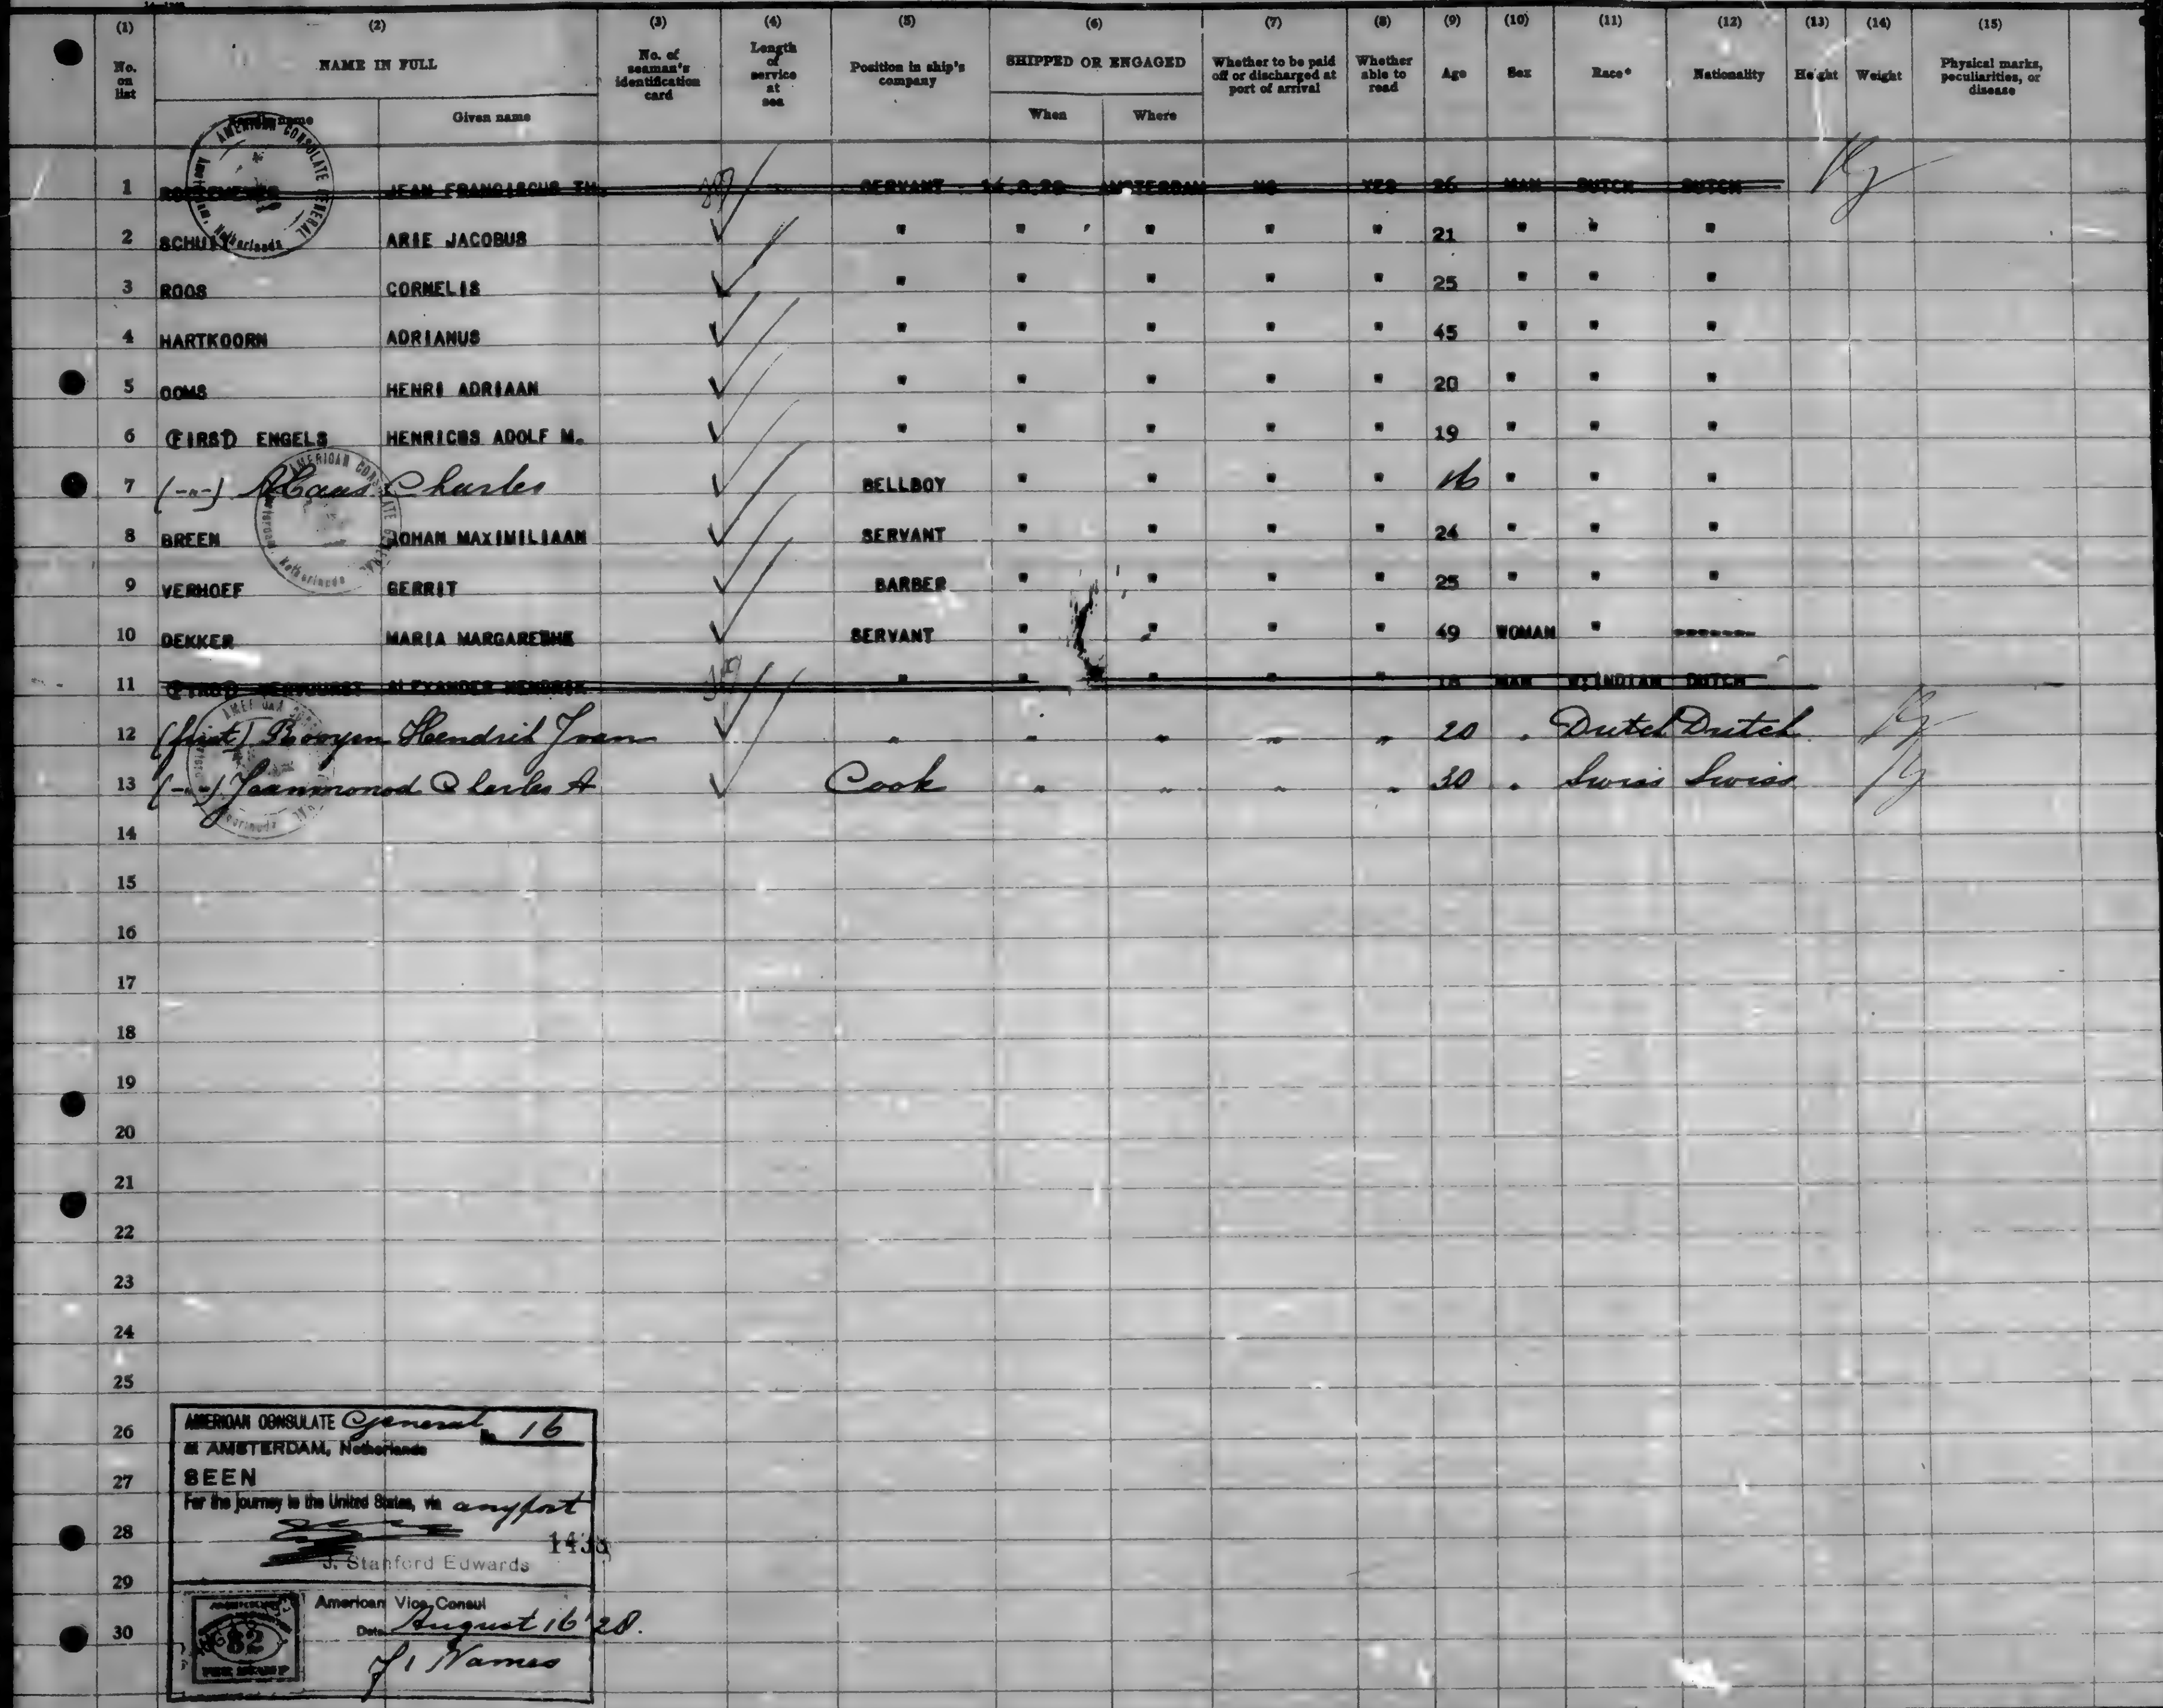 (1) (2) (3) (4) (5) (6) (7) (8) (9) (10) (11) (12) (13) (14) (15)
No. on list NAME IN FULL No. of seaman's identification card Length of service at sea Position in ship's company SHIPPED OR ENGAGED Whether to be paid off or discharged at port of arrival Whether able to read Age Sex Race* Nationality Height Weight Physical marks, peculiarities, or disease
name Given name When Where
1 JEAN FRANCISCUS TH. SERVANT AMSTERDAM NO YES 26 MAN DUTCH DUTCH
2 ARIE JACOBUS " " " " " 21 " " "
3 ROOS CORNELIS " " " " " 25 " " "
4 HARTKOORN ADRIANUS " " " " " 45 " " "
5 OOMS HENRI ADRIAAN " " " " " 20 " " "
6 (FIRST) ENGELS HENRICUS ADOLF M. " " " " " 19 " " "
7 (-"-) Charles BELLBOY " " " " 16 " " "
8 BREEN JOHAN MAXIMILIAAN SERVANT " " " " 24 " " "
9 VERHOEF GERRIT BARBER " " " " 25 " " "
10 DEKKER MARIA SERVANT " " " " 49 WOMAN "
11 ALEXANDER HENDRIK " " " " " 18 MAN W. INDIAN DUTCH
12 (first) Booyen Hendrik " " " " " 20 " Dutch Dutch
13 (-"-) Jeanmonod Charles A Cook " " " " 30 " Swiss Swiss
14
15
16
17
18
19
20
21
22
23
24
25
26
27
28
29
30
AMERICAN CONSULATE General No 16
at AMSTERDAM, Netherlands
SEEN
For the journey to the United States, via any port
J. Stanford Edwards
American Vice Consul
Date August 16 '28.
Names
AMERICAN CONSULATE GENERAL
Netherlands
AMERICAN CONSULATE GENERAL
Netherlands